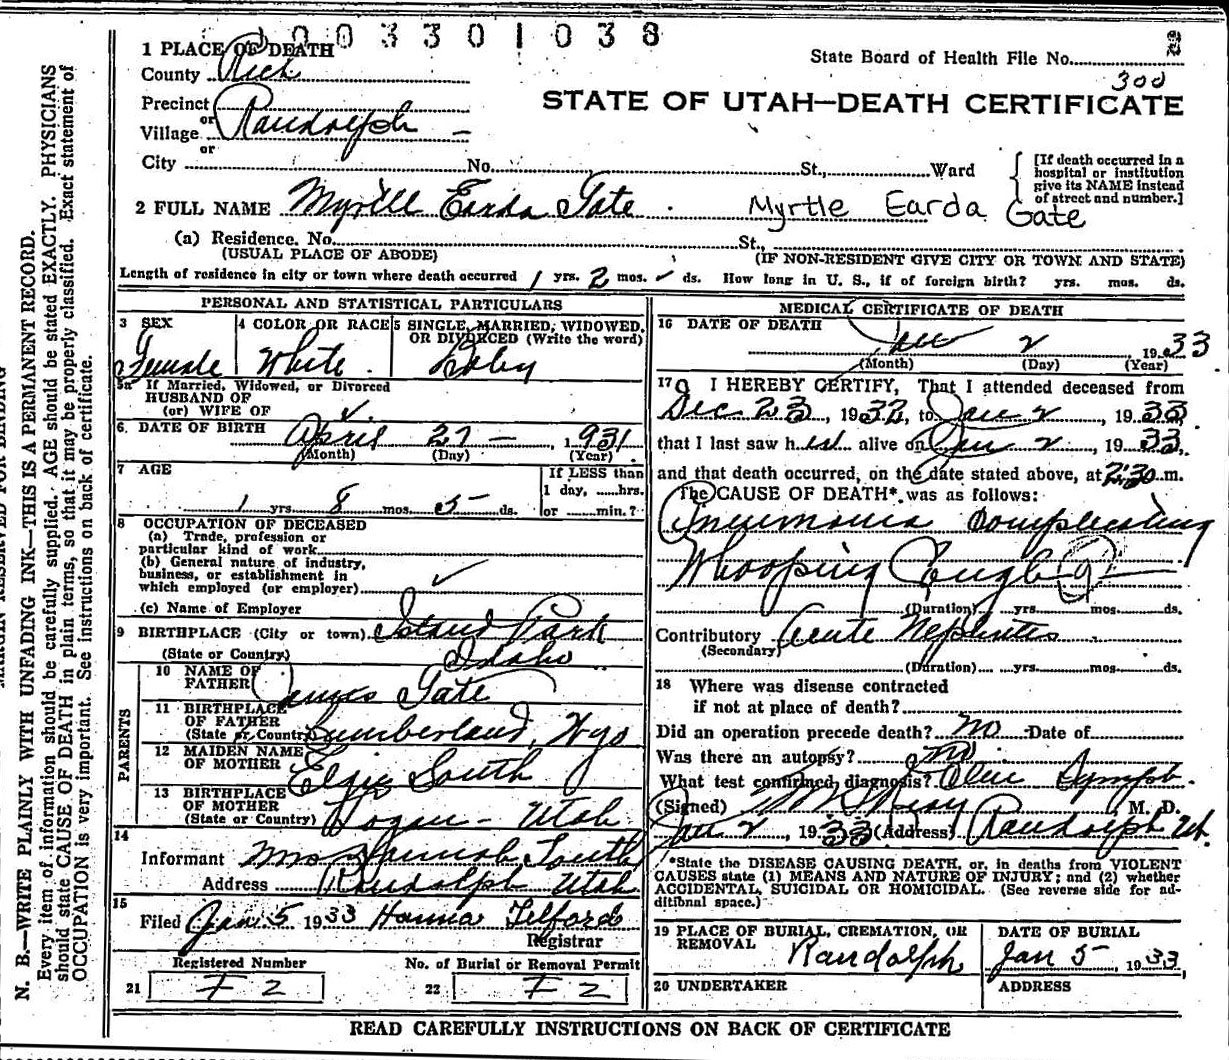 003301038
1 PLACE OF DEATH
County Rich
State Board of Health File No.
300
Precinct
or
Village Randolph
or
STATE OF UTAH—DEATH CERTIFICATE
City No. St., Ward
[If death occurred in a
hospital or institution
give its NAME instead
of street and number.]
2 FULL NAME Myrtle Earda Gate Myrtle Earda Gate
(a) Residence. No. St.,
(USUAL PLACE OF ABODE) (IF NON-RESIDENT GIVE CITY OR TOWN AND STATE)
Length of residence in city or town where death occurred 1 yrs. 2 mos. ds. How long in U. S., if of foreign birth? yrs. mos. ds.
PERSONAL AND STATISTICAL PARTICULARS
3 SEX
Female
4 COLOR OR RACE
White
5 SINGLE, MARRIED, WIDOWED,
OR DIVORCED (Write the word)
Baby
5a If Married, Widowed, or Divorced
HUSBAND OF
(or) WIFE OF
6. DATE OF BIRTH April 27 — , 1931
(Month) (Day) (Year)
7 AGE
1 yrs. 8 mos. 5 ds.
If LESS than
1 day, ......hrs.
or ......min.?
8 OCCUPATION OF DECEASED
(a) Trade, profession or
particular kind of work
(b) General nature of industry,
business, or establishment in
which employed (or employer)
(c) Name of Employer
9 BIRTHPLACE (City or town) Island Park
(State or Country) Idaho
PARENTS
10 NAME OF
FATHER James Gate
11 BIRTHPLACE
OF FATHER
(State or Country) Cumberland, Wyo
12 MAIDEN NAME
OF MOTHER Elzie South
13 BIRTHPLACE
OF MOTHER
(State or Country) Logan - Utah
14
Informant Mrs Hannah South
Address Randolph Utah
15
Filed Jan. 5 1933 Hanna Telford
Registrar
Registered Number
21 F 2
No. of Burial or Removal Permit
22 F 2
MEDICAL CERTIFICATE OF DEATH
16 DATE OF DEATH
Jan 2 1933
(Month) (Day) (Year)
17 I HEREBY CERTIFY, That I attended deceased from
Dec 23, 1932, to Jan 2, 1933,
that I last saw h alive on Jan 2, 1933,
and that death occurred, on the date stated above, at 2:30 m.
The CAUSE OF DEATH* was as follows:
Pneumonia Complicating
Whooping Cough 9
(Duration) yrs. mos. ds.
Contributory Acute Nephritis
(Secondary)
(Duration) yrs. mos. ds.
18 Where was disease contracted
if not at place of death?
Did an operation precede death? No Date of
Was there an autopsy? No
What test confirmed diagnosis? Clin Symph.
(Signed) M. D.
Jan 2, 1933 (Address) Randolph Ut.
*State the DISEASE CAUSING DEATH, or, in deaths from VIOLENT
CAUSES state (1) MEANS AND NATURE OF INJURY; and (2) whether
ACCIDENTAL, SUICIDAL OR HOMICIDAL. (See reverse side for ad-
ditional space.)
19 PLACE OF BURIAL, CREMATION, OR
REMOVAL Randolph
DATE OF BURIAL
Jan 5, 1933,
20 UNDERTAKER
ADDRESS
READ CAREFULLY INSTRUCTIONS ON BACK OF CERTIFICATE
N. B.—WRITE PLAINLY WITH UNFADING INK—THIS IS A PERMANENT RECORD.
Every item of information should be carefully supplied. AGE should be stated EXACTLY. PHYSICIANS
should state CAUSE OF DEATH in plain terms, so that it may be properly classified. Exact statement of
OCCUPATION is very important. See instructions on back of certificate.